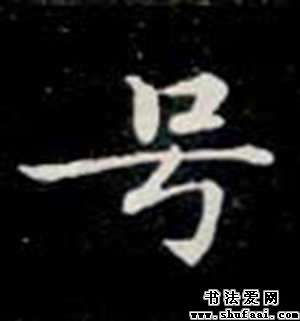 号
书法爱网
www.shufaai.com